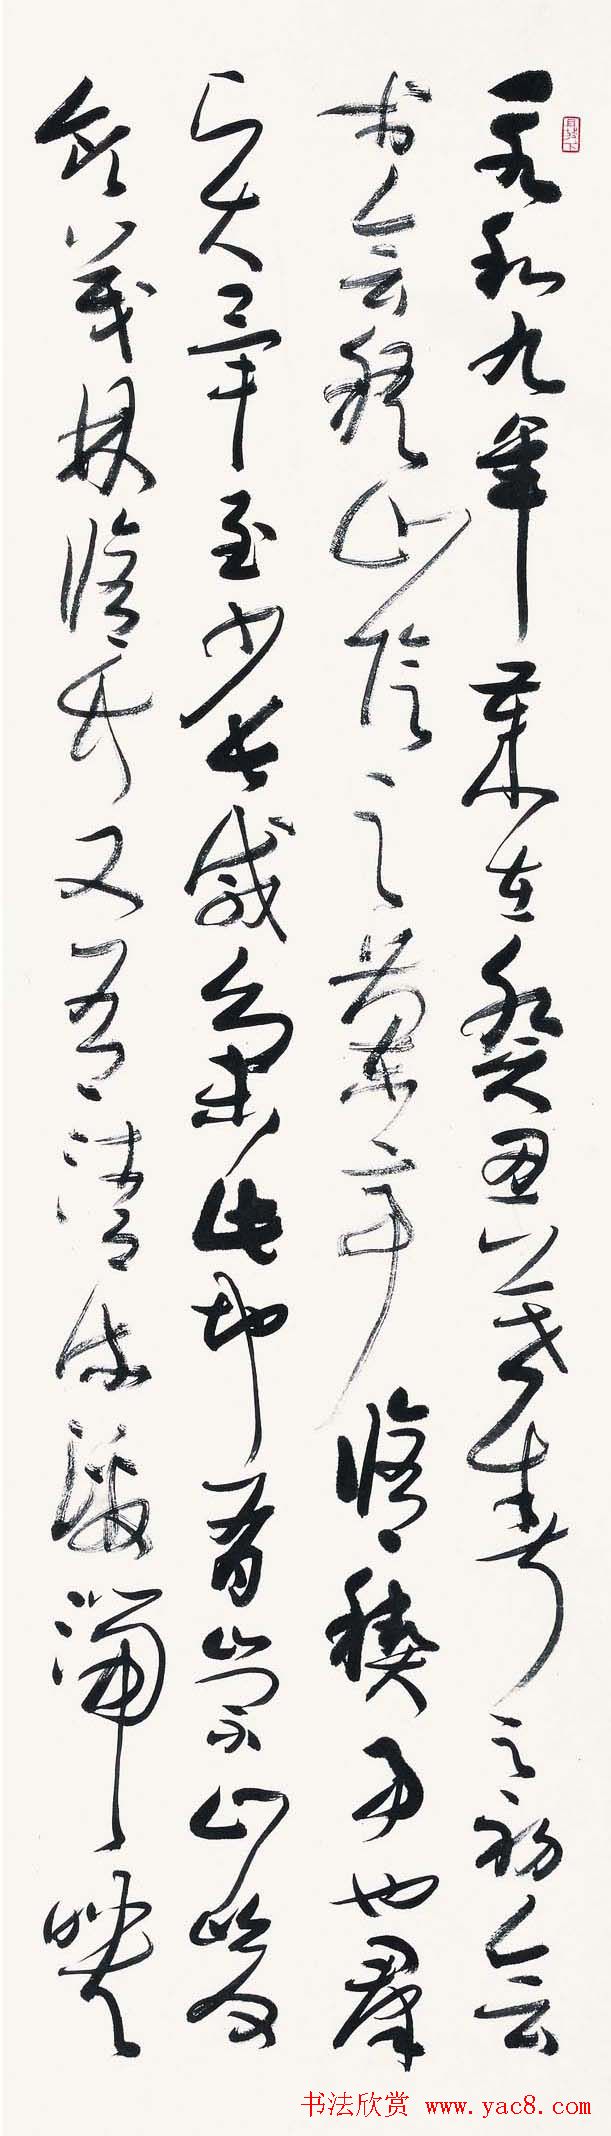 永和九年歲在癸丑暮春之初会
於会稽山陰之蘭亭修禊事也群
賢畢至少長咸集此地有崇山峻
領茂林修竹又有清流激湍映
书法欣赏 www.yac8.com